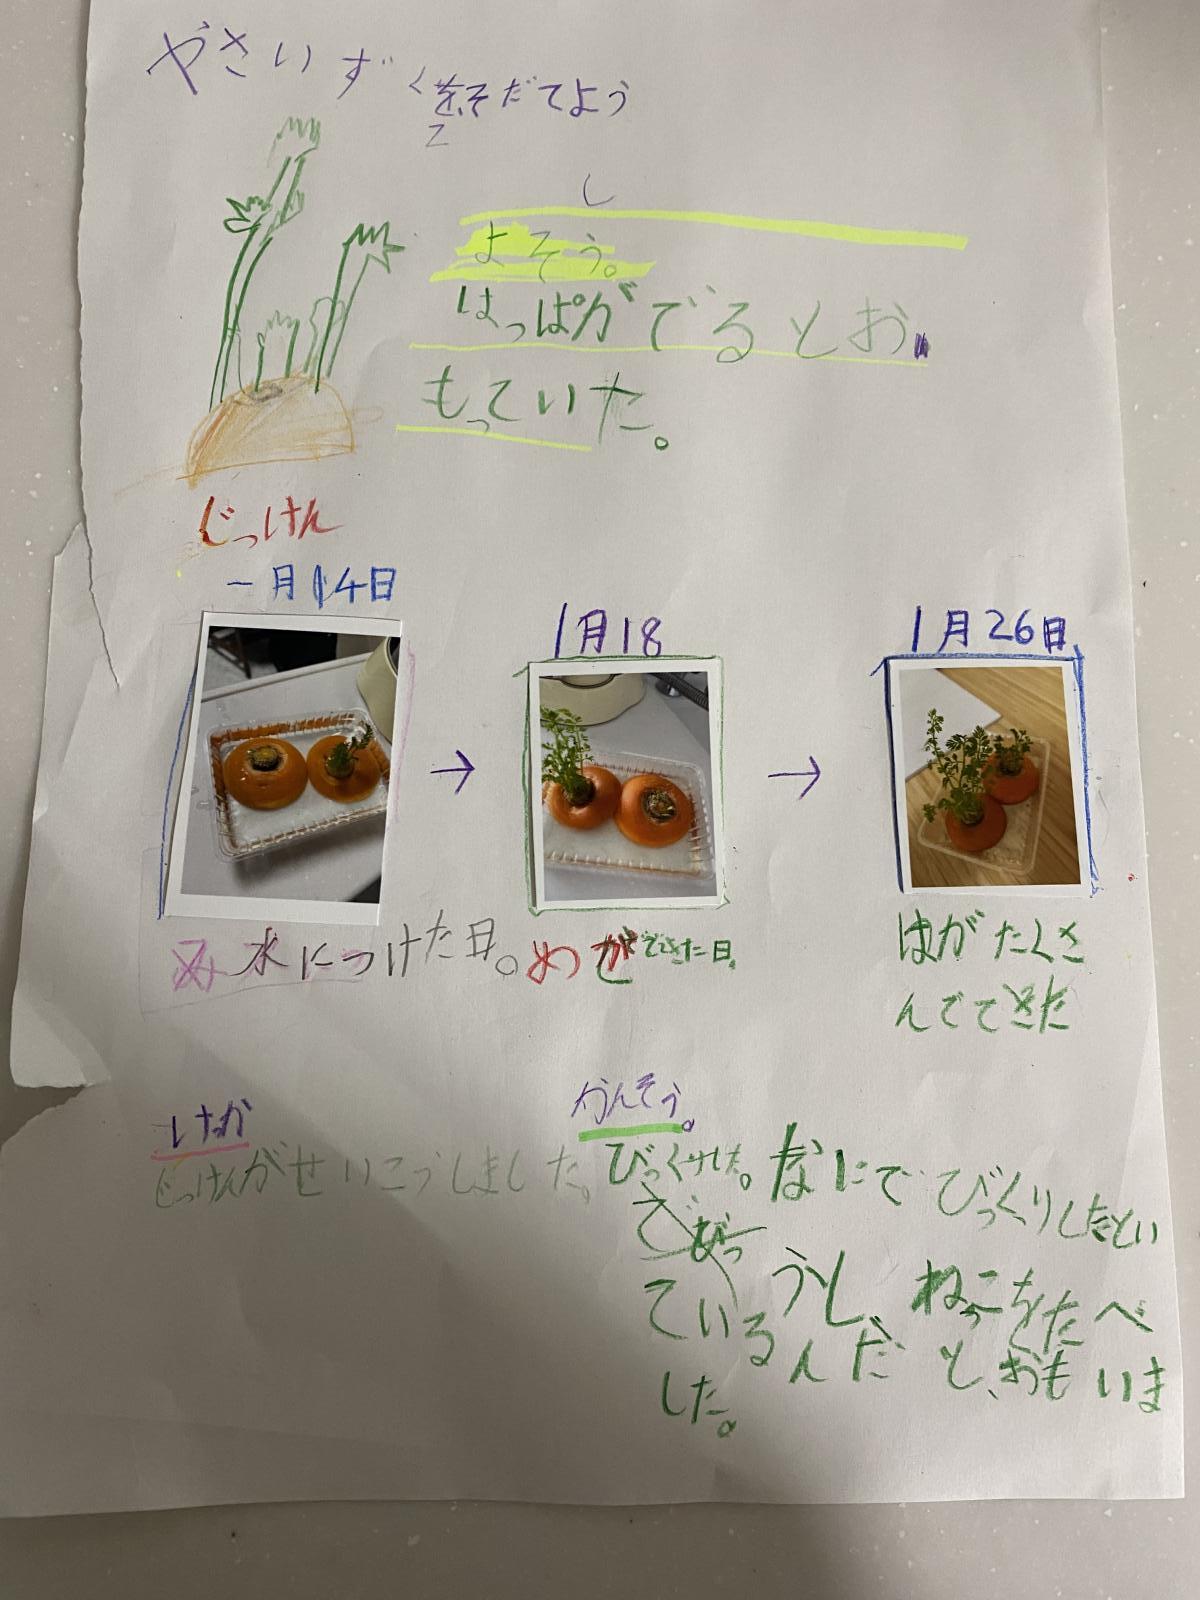 やさいずくをそだてよう
よそう。
はっぱがでるとお
もっていた。
じっけん
一月14日
1月18
1月26日
水につけた日。
めがでてきた日。
はがたくさ
んでてきた
けか
じっけんがせいこうしました。
かんそう。
びっくりした。なにでびっくりしたとい
うし、ねっこをたべ
ているんだと、おもいま
した。